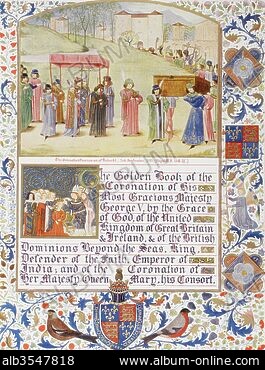 The Golden Book of the
Coronation of His
Most Gracious Majesty
George V, by the Grace
of God, of the United
Kingdom of Great Britain
& Ireland, & of the British
Dominions Beyond the Seas, King,
Defender of the Faith, Emperor of
India; and of the Coronation of
Her Majesty Queen Mary, his Consort.
alb3547818
www.album-online.com